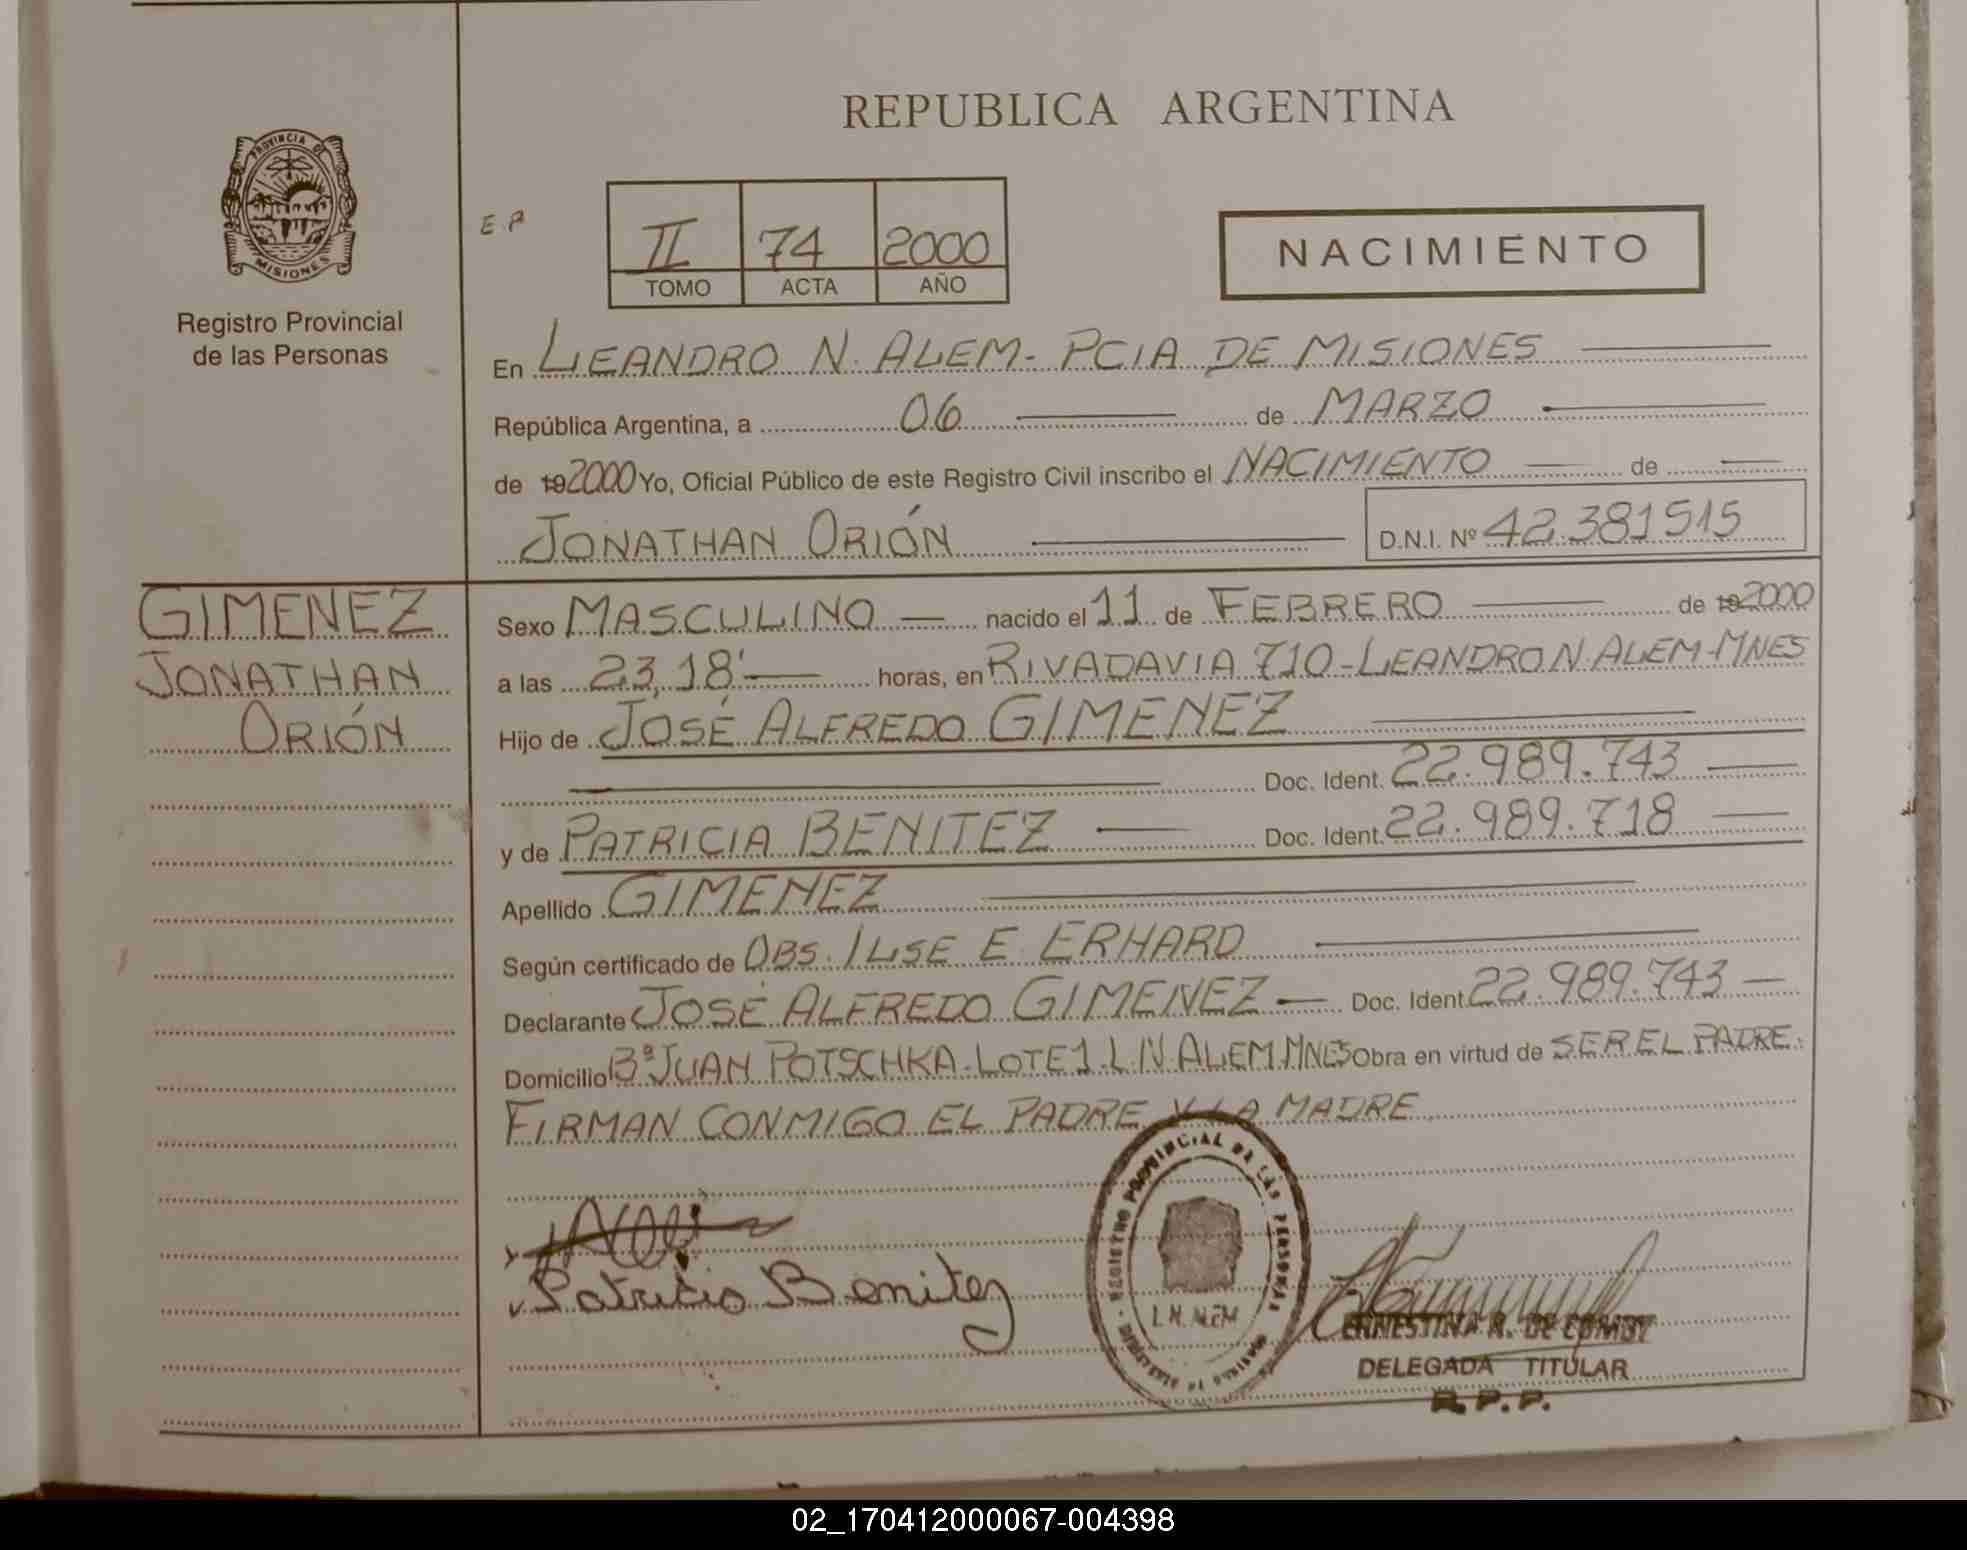 REPUBLICA ARGENTINA
PROVINCIA DE
MISIONES
Registro Provincial
de las Personas
E.P
II 74 2000
TOMO ACTA AÑO
NACIMIENTO
En LEANDRO N. ALEM - PCIA DE MISIONES
República Argentina, a 06 de MARZO
de 192000 Yo, Oficial Público de este Registro Civil inscribo el NACIMIENTO de
JONATHAN ORIÓN D.N.I. Nº 42.381515
GIMENEZ
JONATHAN
ORIÓN
Sexo MASCULINO nacido el 11 de FEBRERO de 192000
a las 23,18' horas, en RIVADAVIA 710 - LEANDRO N. ALEM - MNES
Hijo de JOSÉ ALFREDO GIMENEZ
Doc. Ident. 22.989.743
y de PATRICIA BENITEZ Doc. Ident. 22.989.718
Apellido GIMENEZ
Según certificado de OBS. ILSE E. ERHARD
Declarante JOSÉ ALFREDO GIMENEZ Doc. Ident. 22.989.743
Domicilio Bº JUAN POTSCHKA - LOTE 1 - L.N. ALEM. MNES Obra en virtud de SER EL PADRE.
FIRMAN CONMIGO EL PADRE Y LA MADRE
Patricia Benitez
REGISTRO PROVINCIAL DE LAS PERSONAS
L.N. ALEM
ERNESTINA R. DE
DELEGADA TITULAR
R.P.P.
02_170412000067-004398